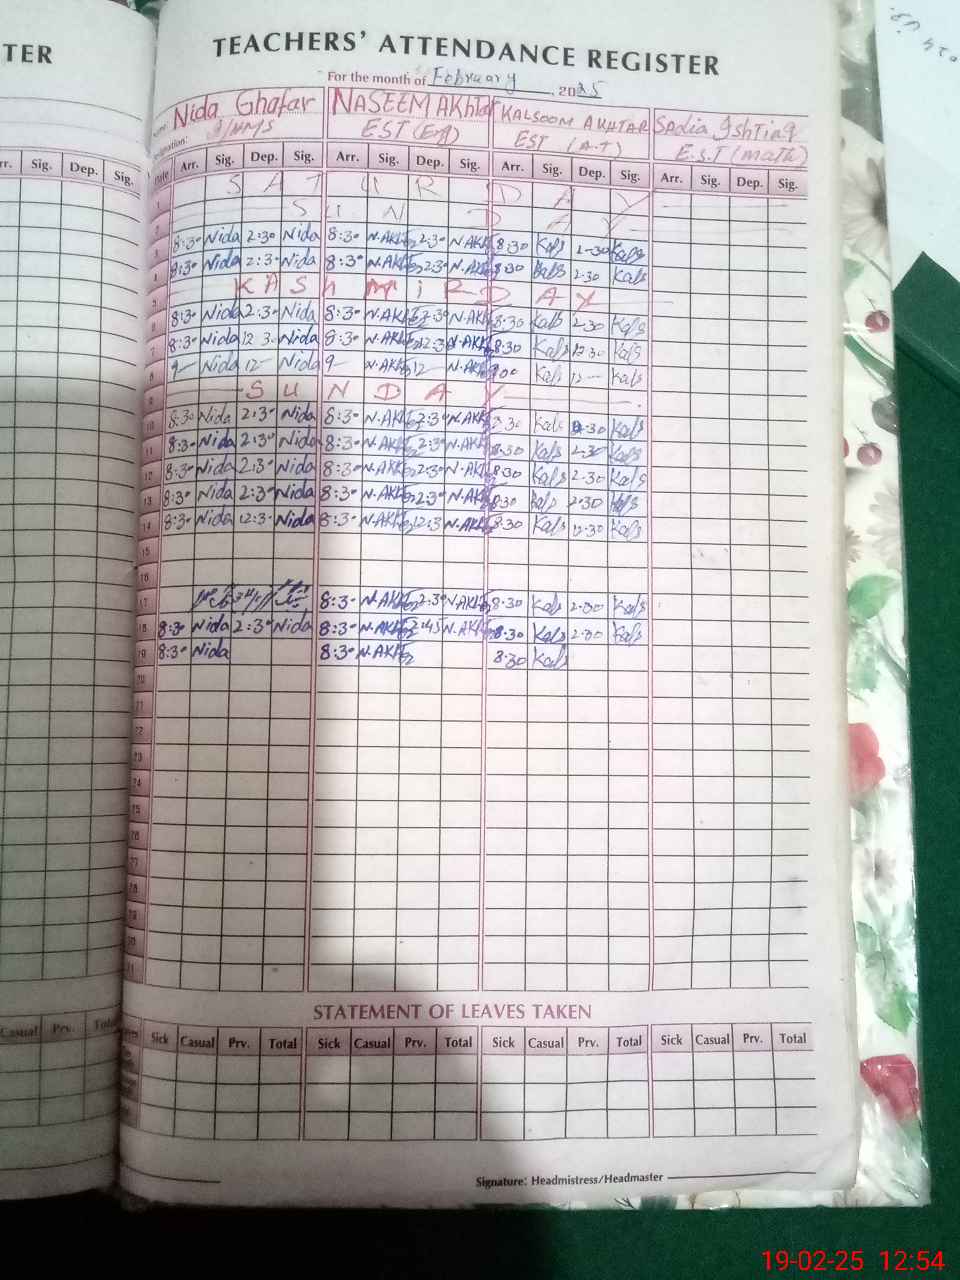 TER
TEACHERS' ATTENDANCE REGISTER
For the month of February 2025
Nida Ghafar NASEEM AKhtar KALSOOM AKHTAR Sadia Ishtiaq
EST (Eng) EST (A.T) E.S.T (math)
Sig. Dep. Sig. Date Arr. Sig. Dep. Sig. Arr. Sig. Dep. Sig. Arr. Sig. Dep. Sig. Arr. Sig. Dep. Sig.
1 SATURDAY
2 SUNDAY
3 8:30 Nida 2:30 Nida 8:30 N.AKht 2:30 N.AKht 8:30 Kals 2:30 Kals
4 8:30 Nida 2:30 Nida 8:30 N.AKht 2:30 N.AKht 8:30 Kals 2:30 Kals
5 KASHMIR DAY
6 8:30 Nida 2:30 Nida 8:30 N.AKht 2:30 N.AKht 8:30 Kals 2:30 Kals
7 8:30 Nida 12:30 Nida 8:30 N.AKht 12:30 N.AKht 8:30 Kals 12:30 Kals
8 9— Nida 12— Nida 9— N.AKht 12— N.AKht 9:00 Kals 12— Kals
9 SUNDAY
10 8:30 Nida 2:30 Nida 8:30 N.AKht 2:30 N.AKht 8:30 Kals 2:30 Kals
11 8:30 Nida 2:30 Nida 8:30 N.AKht 2:30 N.AKht 8:30 Kals 2:30 Kals
12 8:30 Nida 2:30 Nida 8:30 N.AKht 2:30 N.AKht 8:30 Kals 2:30 Kals
13 8:30 Nida 2:30 Nida 8:30 N.AKht 2:30 N.AKht 8:30 Kals 2:30 Kals
14 8:30 Nida 12:30 Nida 8:30 N.AKht 12:30 N.AKht 8:30 Kals 12:30 Kals
15
16
17 8:30 N.AKht 2:30 N.AKht 8:30 Kals 2:30 Kals
18 8:30 Nida 2:30 Nida 8:30 N.AKht 2:45 N.AKht 8:30 Kals 2:30 Kals
19 8:30 Nida 8:30 N.AKht 8:30 Kals
20
21
22
23
24
25
26
27
28
29
30
31
STATEMENT OF LEAVES TAKEN
Casual Prv. Total Sick Casual Prv. Total Sick Casual Prv. Total Sick Casual Prv. Total Sick Casual Prv. Total
Signature: Headmistress/Headmaster
19-02-25 12:54